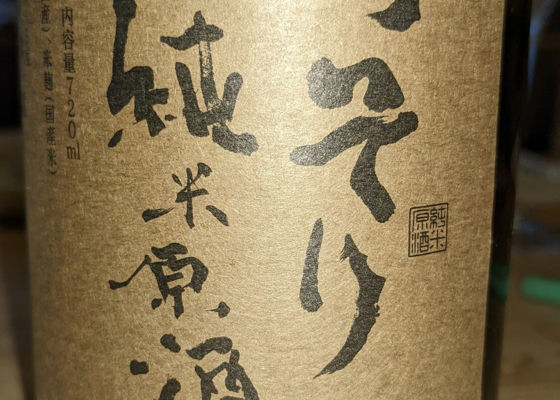 そり
純米原酒
純米
原酒
内容量720ml
産)、米麹(国産米)